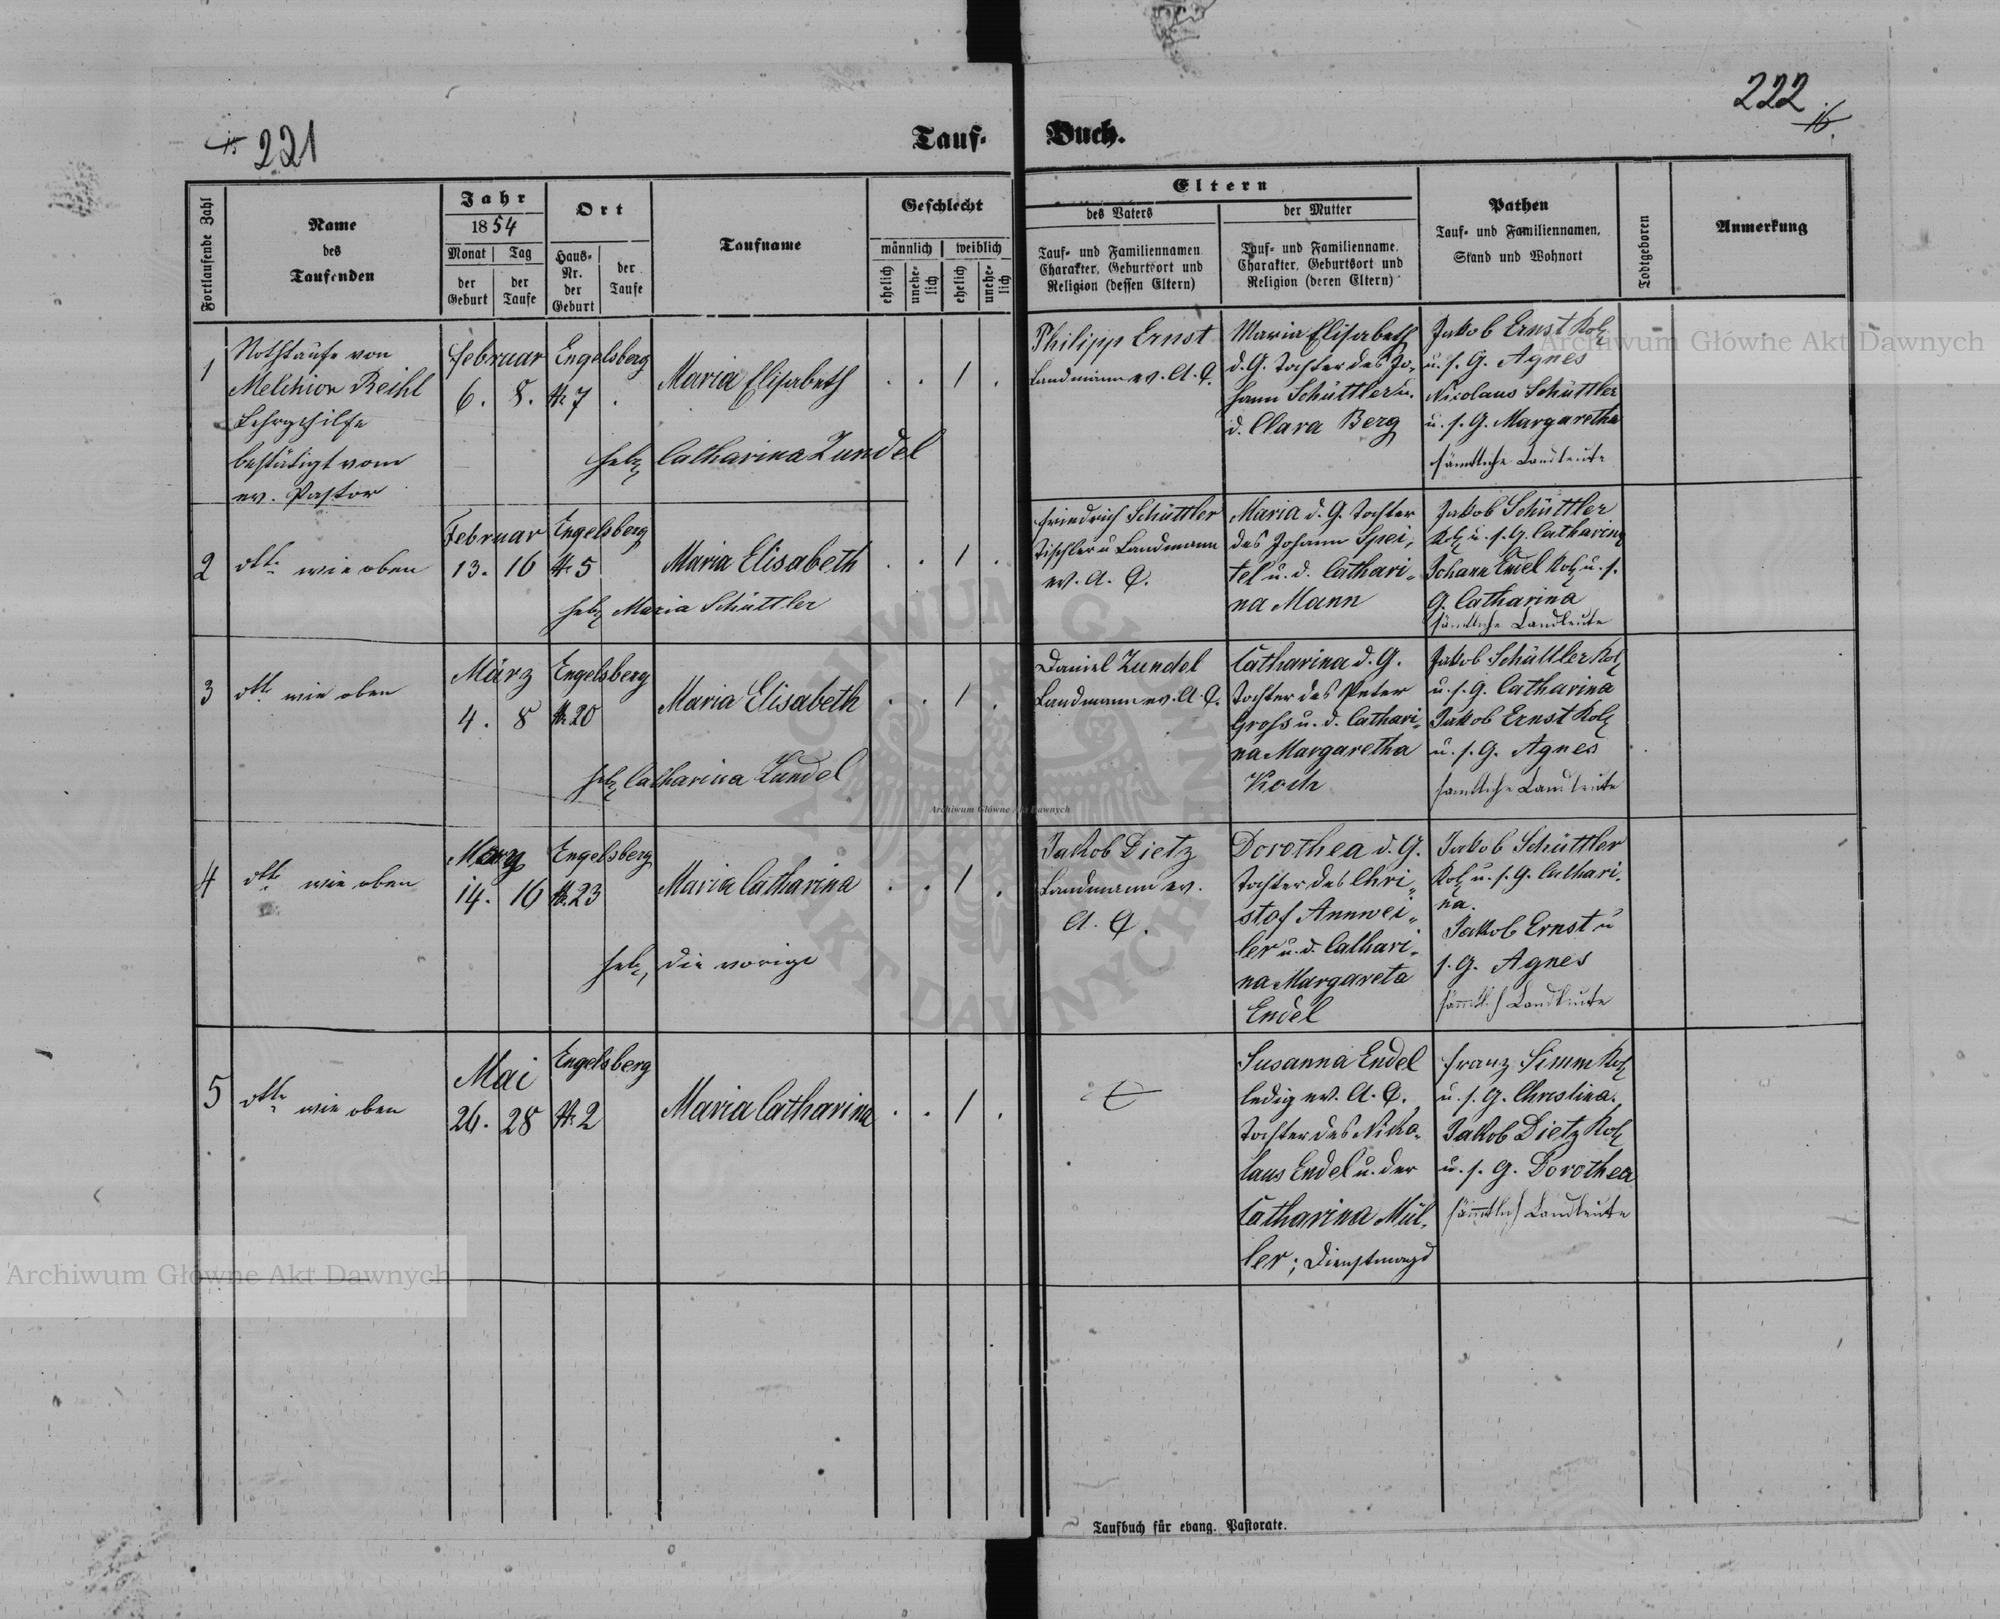 221
222
16
Tauf-
Buch.
Fortlaufende Zahl
Name
des
Taufenden
Jahr
1854
Monat
Tag
der
Geburt
der
Taufe
Ort
Haus-
Nr.
der
Geburt
der
Taufe
Taufname
Geschlecht
männlich
weiblich
ehelich
unehe-
lich
ehelich
unehe-
lich
Eltern
des Vaters
der Mutter
Tauf- und Familiennamen
Charakter, Geburtsort und
Religion (dessen Eltern)
Tauf- und Familienname,
Charakter, Geburtsort und
Religion (deren Eltern)
Pathen
Tauf- und Familiennamen,
Stand und Wohnort
Todtgeboren
Anmerkung
1
Nothtaufe von
Melchior Reihl
Lehrgehilfe
bestätigt vom
ev. Pastor
Februar
6. 8.
Engelsberg
№ 7
Maria Elisabeth
. . 1 .
Heb. Catharina Zundel
Philipp Ernst
Landmann ev. A. C.
Maria Elisabeth
d. G. Tochter des Jo-
hann Schüttler u.
d. Clara Berg
Jakob Ernst Kol.
u. s. G. Agnes
Nicolaus Schüttler
u. s. G. Margaretha
sämtliche Landleute
2
dtto wie oben
Februar
13. 16
Engelsberg
№ 5
Maria Elisabeth
. . 1 .
Heb. Maria Schüttler
Friedrich Schüttler
Tischler u Landmann
ev. A. C.
Maria d. G. Tochter
des Johann Spei-
tel u. d. Cathari-
na Mann
Jakob Schüttler
Kol. u. s. G. Catharina
Johann Endel Kol. u. s.
G. Catharina
sämtliche Landleute
3
dtto wie oben
März
4. 8
Engelsberg
№ 20
Maria Elisabeth
. . 1 .
Heb. Catharina Zundel
Daniel Zundel
Landmann ev. A. C.
Catharina d. G.
Tochter des Peter
Gross u. d. Cathari-
na Margaretha
Koch
Jakob Schüttler Kol.
u. s. G. Catharina
Jakob Ernst Kol.
u. s. G. Agnes
sämtliche Landleute
4
dtto wie oben
März
14. 16
Engelsberg
№ 23
Maria Catharina
. . 1 .
Heb. die vorige
Jakob Dietz
Landmann ev.
A. C.
Dorothea d. G.
Tochter des Chri-
stof Annwei-
ler u. d. Cathari-
na Margareta
Endel
Jakob Schüttler
Kol. u. s. G. Cathari-
na.
Jakob Ernst u
s. G. Agnes
sämtlich Landleute
5
dtto wie oben
Mai
26. 28
Engelsberg
№ 2
Maria Catharina
. . 1 .
Susanna Endel
ledig ev. A. C.
Tochter des Niko-
laus Endel u. der
Catharina Mül-
ler; Dienstmagd
Franz Simm Kol.
u. s. G. Christina.
Jakob Dietz Kol.
u. s. G. Dorothea
sämtlich Landleute
Taufbuch für evang. Pastorate.
Archiwum Główne Akt Dawnych
Archiwum Główne Akt Dawnych
Archiwum Główne Akt Dawnych